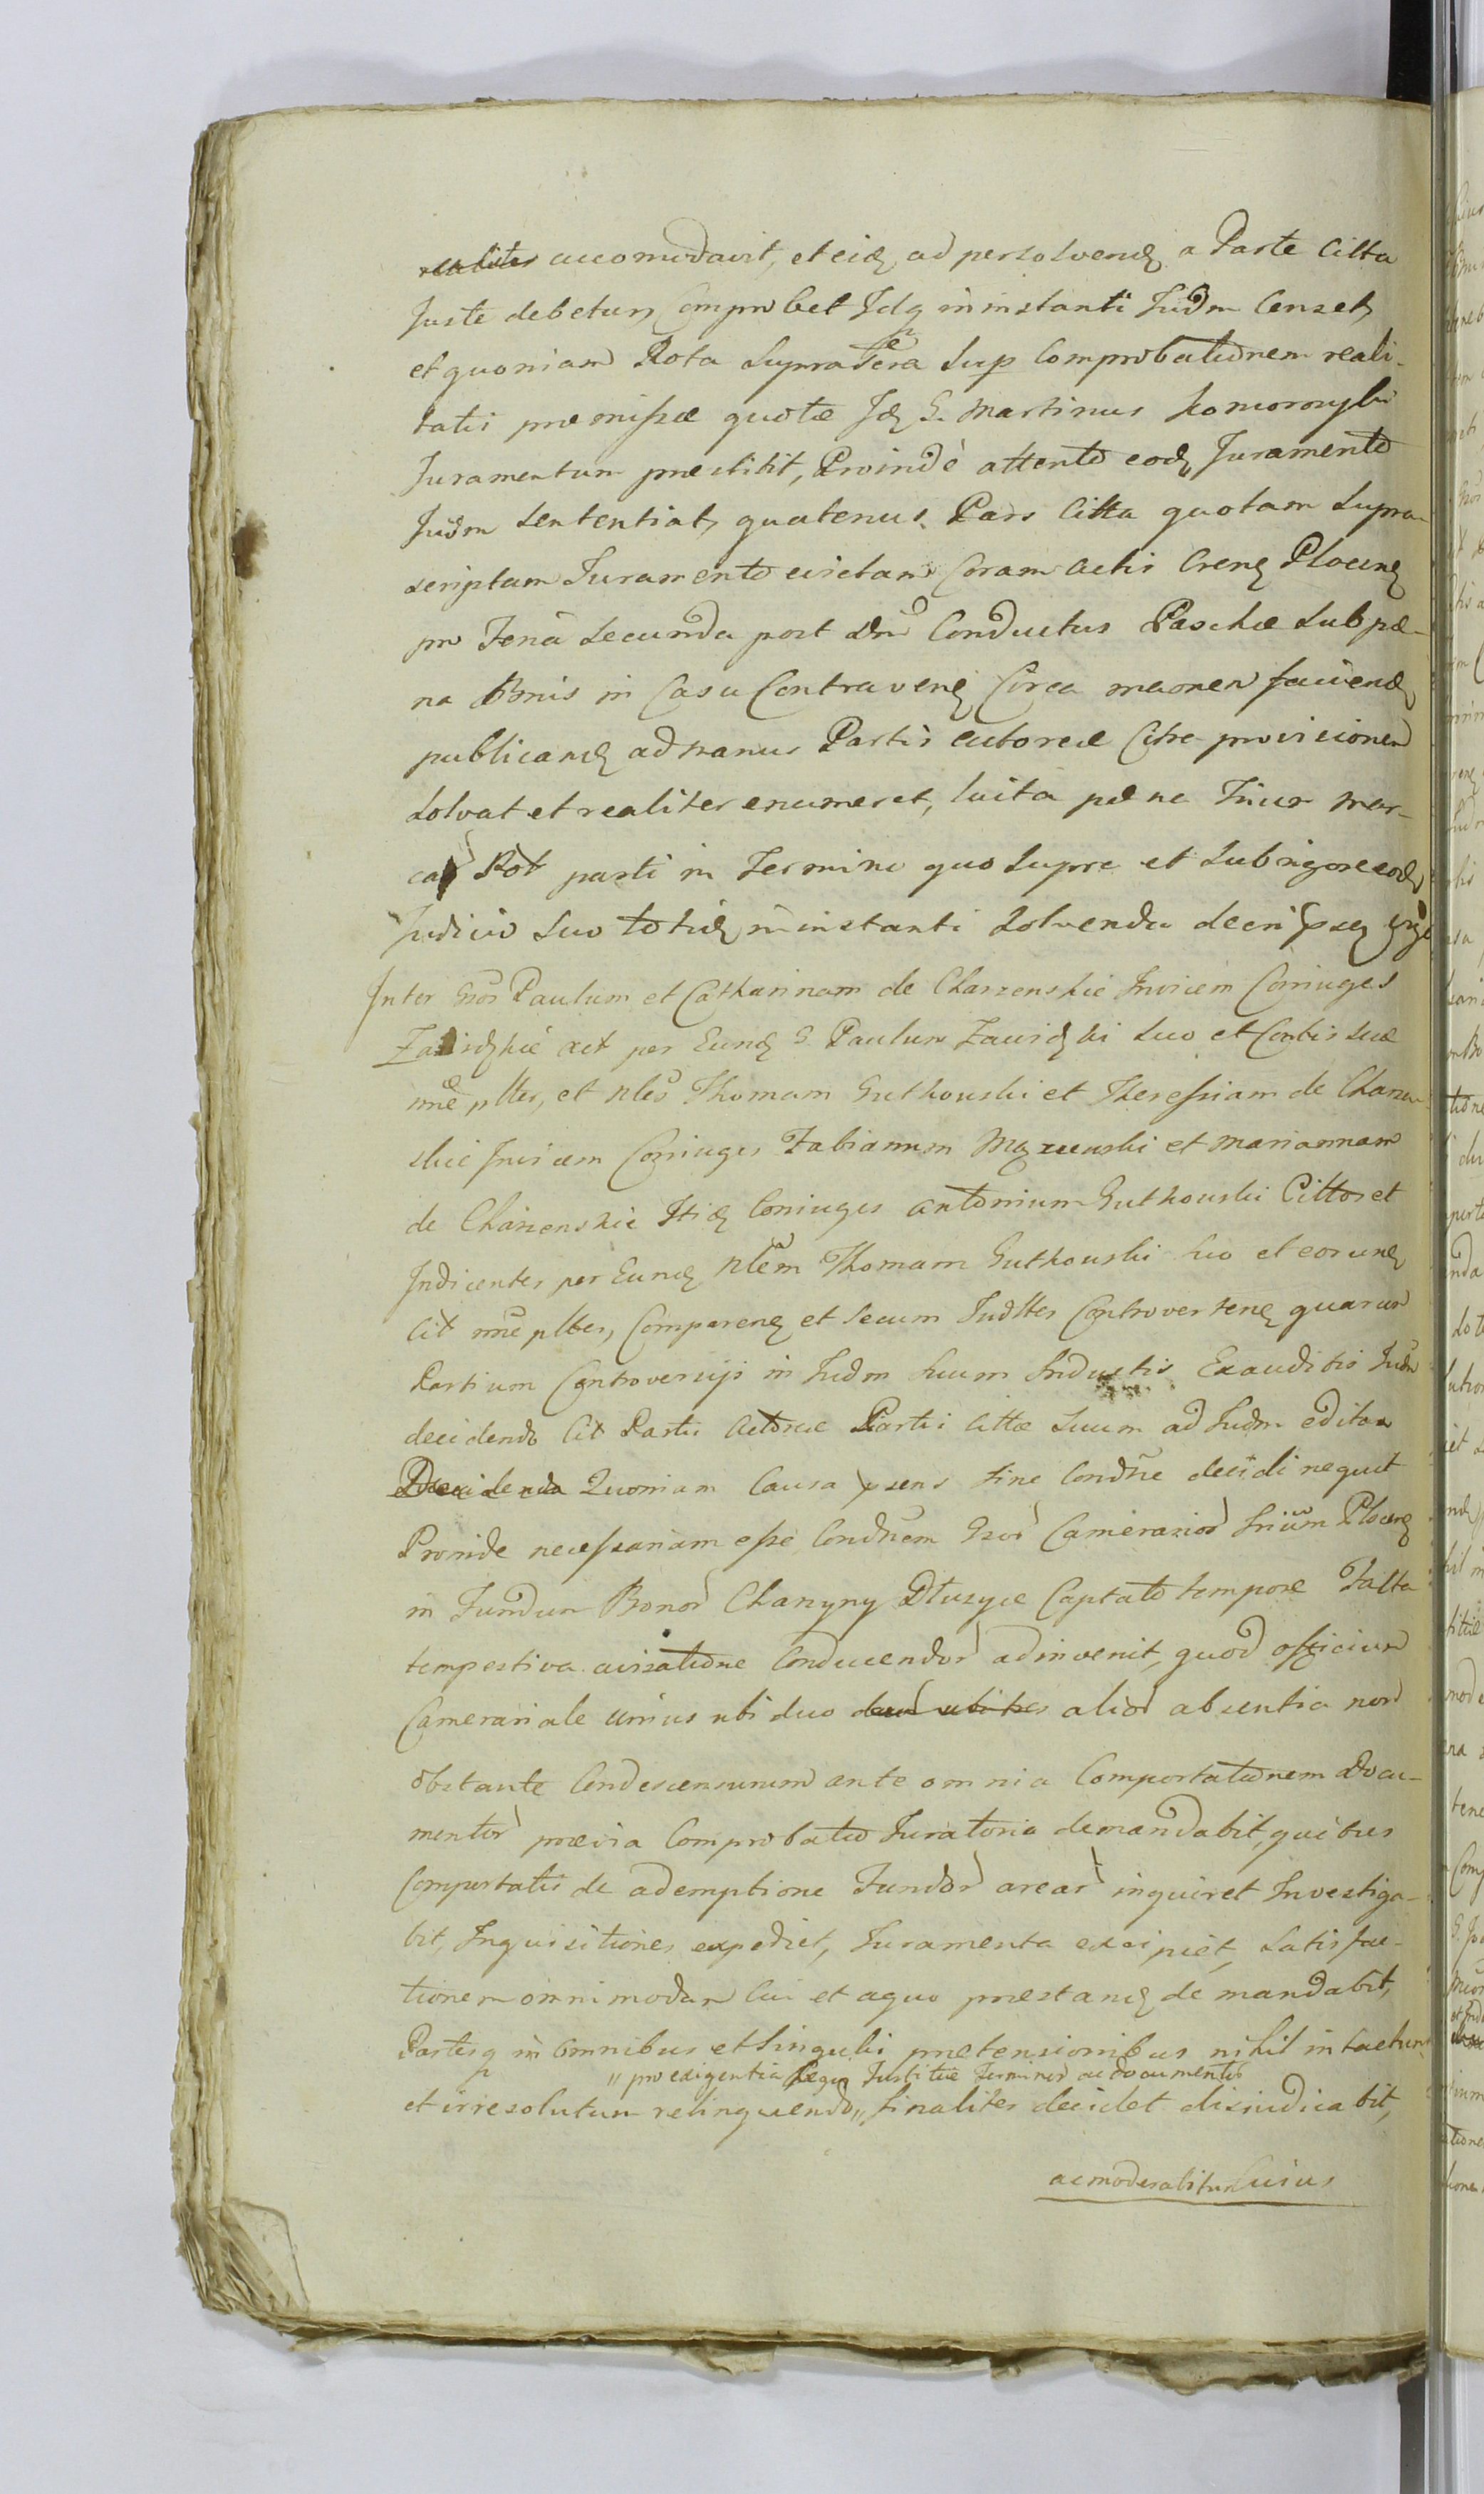 realiter accomodavit, et eidꝫ ad persolvendꝫ a Parte Citta
Juste debetur, Comprobet Idq in instanti Judm Censet,
et quoniam Rota supra Sup Comprobationem reali-
tatis præmissæ quotæ Idꝫ G. Martinus
Juramentum præstitit, Proindè attento eodꝫ Juramento
Judm sententiat, quatenus Pars Citta quotam supra-
scriptam Juramento evictam Coram Actis Crenꝫ Plocenꝫ
pro secunda post Conductus Paschæ sub pæ-
na Bonis in Casu Contravenꝫ Circa faciendꝫ
publicandꝫ ad manus Partis Actoreæ Citra provisionem
Solvat et realiter enumeret, luita pæna Trium Mar-
car Pol parti in Termino quo supra et sub rigore eodꝫ
Judicio suo totidꝫ in instanti Solvenda
Inter Gsos Paulum et Catharinam de Charzenskie Invicem Coniuges
Zawidzkie act per Eundꝫ G. Paulum Zawidzki suo et Contis suæ
nne plter, et Nles Thomam Gutkowski et Theressiam de Charzen-
skie Invicem Coniuges Fabianum et Mariannam
de Charzenskie Itidꝫ Coniuges Antonium Gutkowski Cittos et
Indicentes per Eundꝫ Nlem Thomam Gutkowski suo et eorundꝫ
Cit nne plter, Comparenꝫ et secum Judlter Controvertenꝫ quarum
Partium Controversijs in Judm suum Inductis Exauditis Judm
decidendo Cit Partis Actoreæ Parti Cittæ suum ad Judm editam
Decidendo Quoniam Causa psens sine Condne decidi nequit
Proinde necessariam esse Condnem Gsor Camerarior Plocenꝫ
in Fundum Bonor Charzyny Dłuzyce Captato tempore Facta
tempestiva avisatione Conducendor adinvenit, quod officium
Camerariale unius ubi duo alior absentia non
obstante Condescensurum ante omnia Comportationem Docu-
mentor prævia Comprobatio Juratoria demandabit, quibus
Comportatis de ademptione Fundor arear inquiret Investiga-
bit, Inquisitiones expediet, Juramenta excipiet, satisfac-
tionem omnimodam Cui et a quo præstandꝫ demandabit,
Partesq in omnibus et singulis prætensionibus nihil intactum
" pro exigentia Legu Justitiæ Terminor ac documentor
et irresolutum relinquendo, " finaliter decidet disiudicabit,
ac moderabitur Cuius